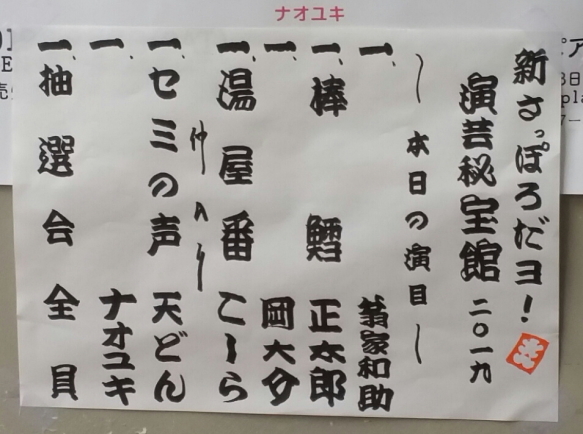 ナオユキ
新さっぽろだヨ!
演芸秘宝館 二〇一九
〜本日の演目〜
一、 翁家和助
一、棒鱈 正太郎
一、 岡大介
一、湯屋番 こーら
仲入り
一、セミの声 天どん
一、 ナオユキ
一、抽選会 全員